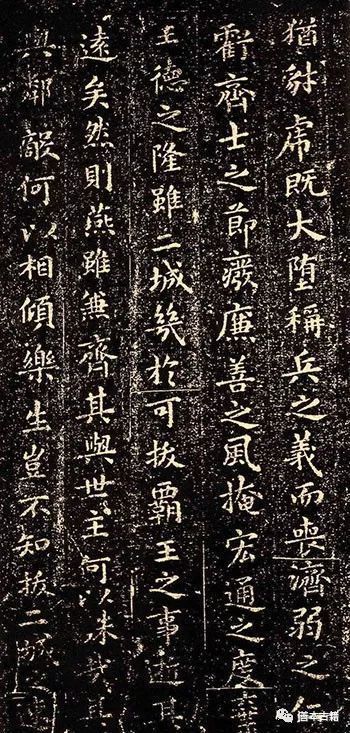 猶豺虎既大墮稱兵之義而喪濟弱之仁
虧齊士之節廢廉善之風掩宏通之度棄
王德之隆雖二城幾於可拔霸王之事逝其
遠矣然則燕雖兼齊其與世主何以殊哉其
與鄰敵何以相傾樂生豈不知拔二城之
善本古籍